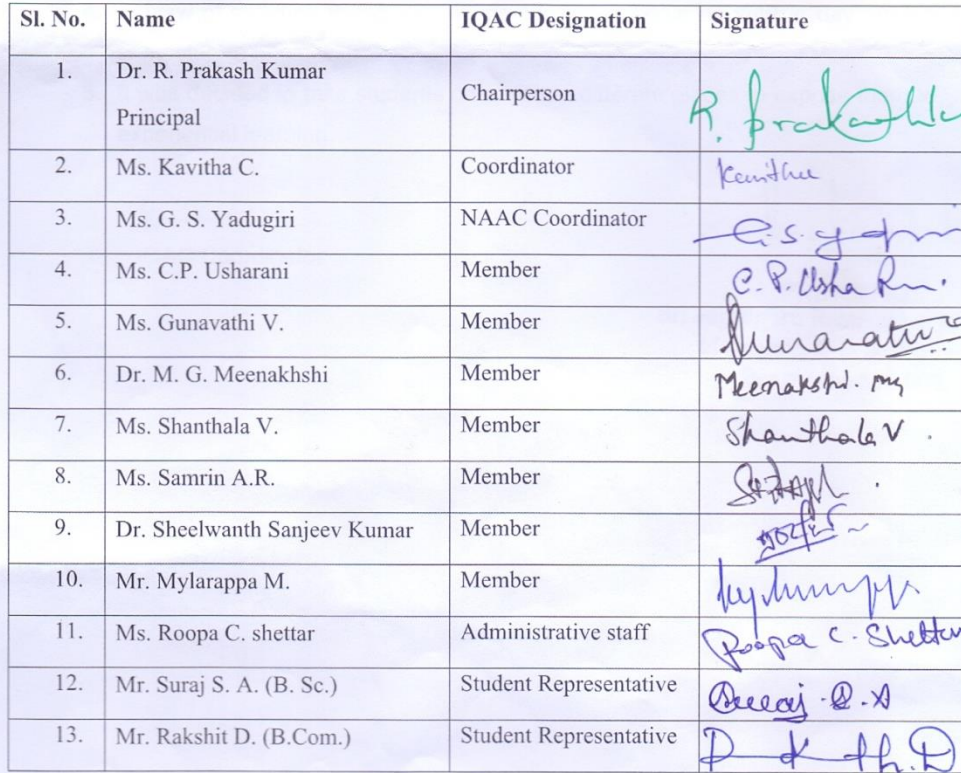 Sl. No. Name IQAC Designation Signature
1. Dr. R. Prakash Kumar Chairperson R. Prakash
Principal
2. Ms. Kavitha C. Coordinator Kavitha
3. Ms. G. S. Yadugiri NAAC Coordinator G.S.
4. Ms. C.P. Usharani Member C.P. Usha
5. Ms. Gunavathi V. Member
6. Dr. M. G. Meenakhshi Member Meenakshi. MG
7. Ms. Shanthala V. Member Shanthala V.
8. Ms. Samrin A.R. Member
9. Dr. Sheelwanth Sanjeev Kumar Member
10. Mr. Mylarappa M. Member
11. Ms. Roopa C. shettar Administrative staff Roopa C. Shettar
12. Mr. Suraj S. A. (B. Sc.) Student Representative Suraj. S. A
13. Mr. Rakshit D. (B.Com.) Student Representative